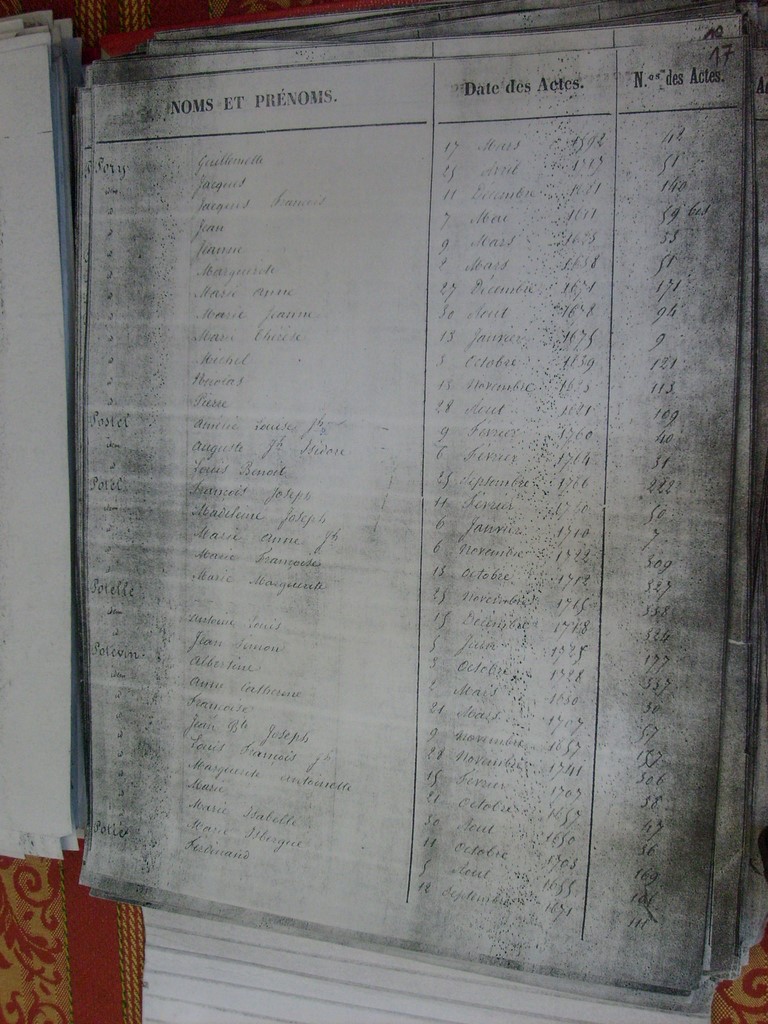 17
NOMS ET PRÉNOMS. Date des Actes. N.os des Actes.
Pory Guillemette 17 Mars 1592 42
idem Jacques 25 Avril 1717 51
d° Jacques Francois 11 Decembre 1621 140
d° Jean 7 1611 59 bis
d° Jeanne 9 Mars 1675 35
d° Marguerite 2 Mars 1658 51
d° Marie Anne 27 Decembre 1671 171
d° Marie Jeanne 30 Aout 1678 94
d° Marie Thérèse 13 Janvier 1675 9
d° Michel 3 Octobre 1659 121
d° Nicolas 15 Novembre 1625 113
d° Pierre 28 Aout 1621 109
Postel Amélie Louise Jh 9 Fevrier 1760 40
idem Auguste Jh Isidore 6 Fevrier 1764 31
d° Louis Benoit 25 Septembre 1766 222
Potel Francois Joseph 11 Fevrier 1750 50
idem Madeleine Joseph 6 Janvier 1710 7
d° Marie Anne Jh 6 Novembre 1722 309
d° Marie Francoise 15 Octobre 1712 327
d° Marie Marguerite 25 Novembre 1715 338
Potelle 15 Decembre 1718 324
idem Antoine Louis 5 Juin 1725 177
d° Jean Simon 3 Octobre 1728 337
Potevin Albertine 2 Mars 1650 30
idem Anne Catherine 21 Mars 1707 57
d° Francoise 9 Novembre 1657 137
d° Jean Bte Joseph 28 Novembre 1741 306
d° Louis Francois Jh 15 Fevrier 1707 38
d° Marguerite Antoinette 21 Octobre 1657 47
d° Marie 30 Aout 1650 36
d° Marie Isabelle 11 Octobre 1703 169
d° Marie Isbergue 5 Aout 1655 101
Potié Ferdinand 12 Septembre 1671 111